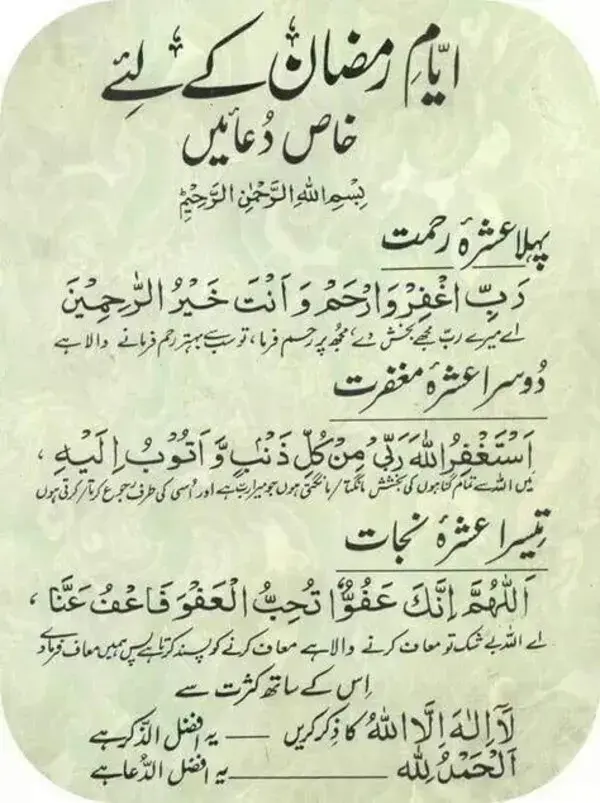 ایّامِ رمضان کے لئے
خاص دُعائیں
بِسْمِ اللهِ الرَّحْمٰنِ الرَّحِيْمِ
پہلا عشرۂ رحمت
رَبِّ اغْفِرْ وَارْحَمْ وَاَنْتَ خَيْرُ الرّٰحِمِيْنَ
اے میرے ربّ مجھے بخش دے، مجھ پر رحم فرما، تو سب سے بہتر رحم فرمانے والا ہے
دُوسرا عشرۂ مغفرت
اَسْتَغْفِرُ اللهَ رَبِّىْ مِنْ كُلِّ ذَنْبٍ وَّاَتُوْبُ اِلَيْهِ ،
میں اللہ سے تمام گناہوں کی بخشش مانگتا / مانگتی ہوں جو میرا ربّ ہے اور اُسی کی طرف رجوع کرتا / کرتی ہوں
تیسرا عشرۂ نجات
اَللّٰهُمَّ اِنَّكَ عَفُوٌّ تُحِبُّ الْعَفْوَ فَاعْفُ عَنَّا ،
اے اللہ بے شک تو معاف کرنے والا ہے معاف کرنے کو پسند کرتا ہے پس ہمیں معاف فرما دے
اِس کے ساتھ کثرت سے
لَآ اِلٰهَ اِلَّا اللهُ کا ذِکر کریں — یہ افضل الذّکر ہے
اَلْحَمْدُ لِلّٰه — یہ افضل الدُّعا ہے